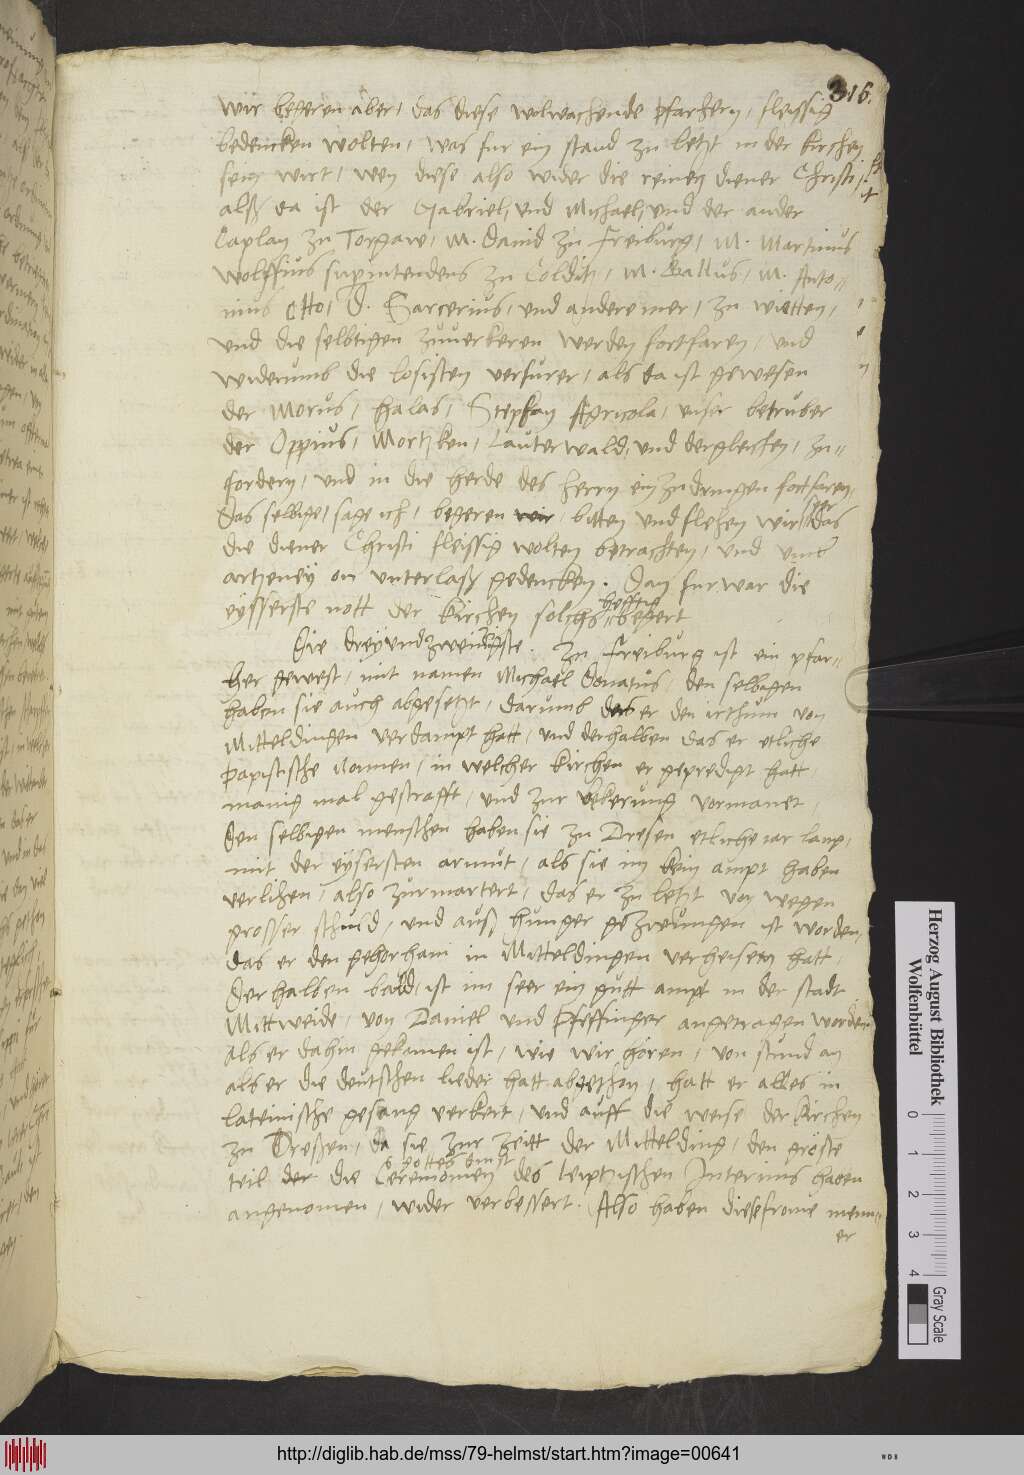 316.
wir begeren aber, das diese wolwachende pfarhern, fleissig
bedencken wolten, was fur ein stand zu letzt in der kirchen
sein wirt, wen diese also wider die reinen diener Christi,
alß da ist der Gabriel, und Michael, und der ander
Caplan zu Torgaw, M. David zu Freiburg, M. Martinus
Wolffius supintendens zu Colditz, M. Gallus, M. Anto-
nius Otto, D. Sarcerius, und andere mer, zu wietten,
und die selbtigen zuverkeren werden fortfaren, und
widerumb die losisten verfurer, als da ist gewesen
der Morus, halas, Stepfan Agricola, unser betruber
der Oppius, Mortzken, Lauterwald, und dergleichen, zu-
fordern, und in die herde des herrn ein zu dringen fortfaren,
Das selbige, sage ich, begeren wir, bitten und flehen wir seer das
die diener Christi fleissig wolten betrachten, und umb
artzeney on unterlaß gedencken. Dan furwar die
eysserste nott der kirchen solchs hefftig begert
Die dreyundzwenzigste. Zu Freiburg ist ein pfar-
her gewest, mit namen Michael Donatus, den selbigen
haben sie auch abgesetzt, darumb das er den irthum von
Mitteldingen verdampt hatt, und derhalben das er etliche
papistische Nonnen, in welcher kirchen er gepredigt hatt,
manig mal gestrafft, und zur bekerung vormanet,
Den selbigen menschen haben sie zu Dresen etliche iar lang,
mit der eysersten armut, als sie im kein ampt haben
verlihen, also zurmartert, das er zu letzt von wegen
grosser schuld, und auß hunger gezwungen ist worden,
das er den gehorsam in Mitteldingen verheisen hatt,
Derhalben bald, ist im seer ein gutt ampt in der stadt
Mittweide, von Daniel und Pfeffinger angetragen worden
Als er dahin gekomen ist, wie wir horen, von stund an
als er die deutschen lieder hatt abgethon, hatt er alles in
lateinische gesang verkert, und auff die weise der kirchen
zu Dreßen, da sie zur zeitt der Mittelding, den gröste
teil der die Ceremonien gottes dinst des leiptzischen Interims haben
angenomen, wider verbessert. Also haben diese frome menn-
er
Herzog August Bibliothek
Wolfenbüttel
0
1
2
3
4
Gray Scale
http://diglib.hab.de/mss/79-helmst/start.htm?image=00641
WDB